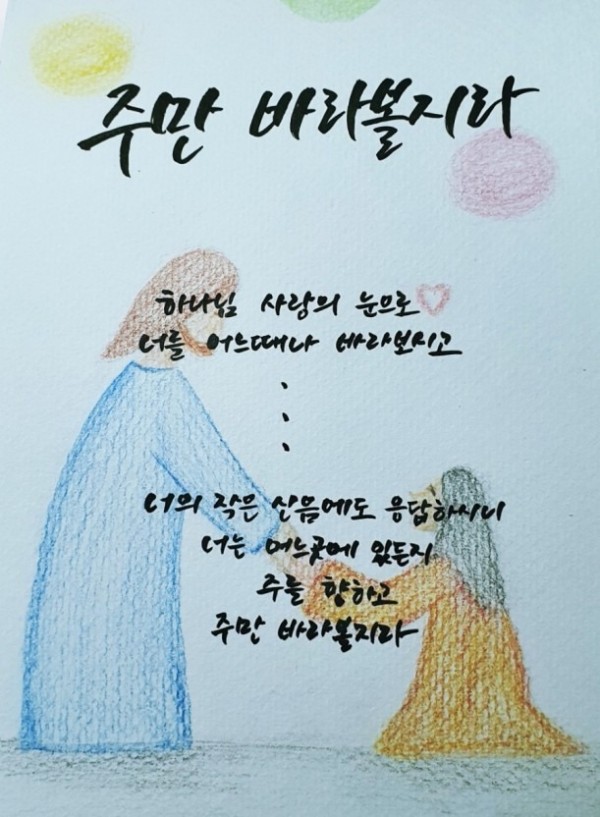 주만 바라볼지라
하나님 사랑의 눈으로
너를 어느때나 바라보시고
너의 작은 신음에도 응답하시니
너는 어느곳에 있든지
주를 향하고
주만 바라볼지라